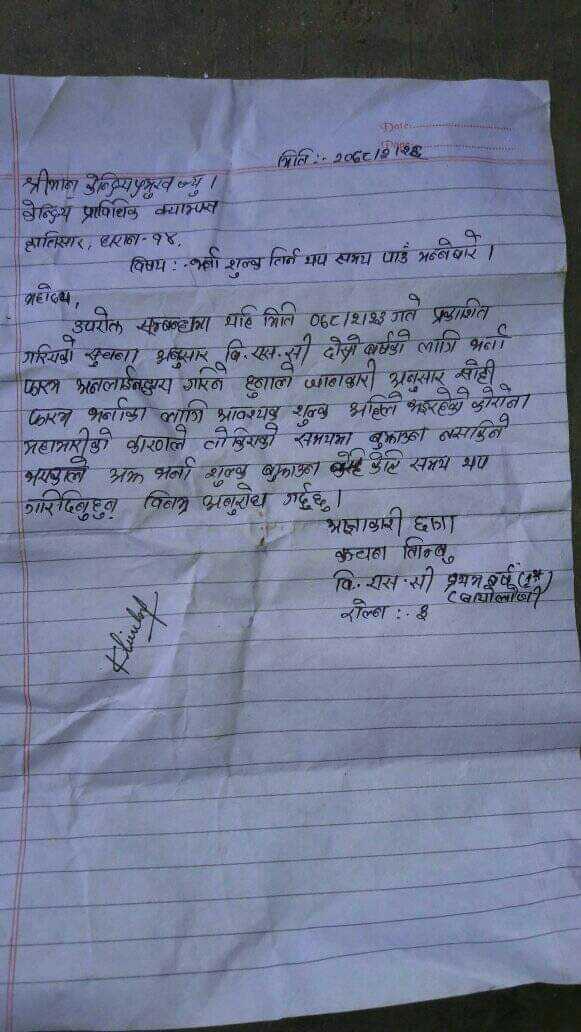 Date:
Date:
मिति :- २०७८।२।२६
श्रीमान् केन्द्रियप्रमुख ज्यु ।
केन्द्रिय प्राविधिक क्याम्पस
हात्तिसार, धरान-१४,
विषय :- भर्ना शुल्क तिर्न थप समय पाउँ भन्नेबारे ।
महोदय,
उपरोक्त सम्बन्धमा यहि मिति ०७८।२।२३ गते प्रकाशित
गरिएको सुचना अनुसार बि.एस.सी दोस्रो बर्षको लागि भर्ना
फारम अनलाईनद्वारा गरिने हुनाले जानकारी अनुसार सोही
फारम भर्नाका लागि आवश्यक शुल्क अहिले भइरहेको कोरोना
महामारीको कारणले तोकिएको समयमा बुझाउन नसकिने
भएकाले अझ भर्ना शुल्क बुझाउन केहि समय थप
गरिदिनुहुन विनम्र अनुरोध गर्दछु ।
आज्ञाकारी छात्रा
कञ्चन लिम्बु
बि.एस.सी प्रथम बर्ष (1st)
(बायोलोजी)
रोल नं :- ३